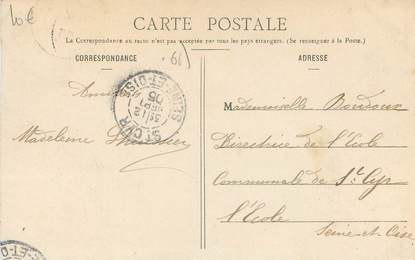 10€
CARTE POSTALE
La Correspondance au recto n'est pas acceptée par tous les pays étrangers. (Se renseigner à la Poste.)
CORRESPONDANCE
ADRESSE
91
ST CYR
SEINE-ET-OISE
05
Madeleine
Mademoiselle Boudoux
Directrice de l'Ecole
Communale de St Cyr
l'Ecole
Seine et Oise